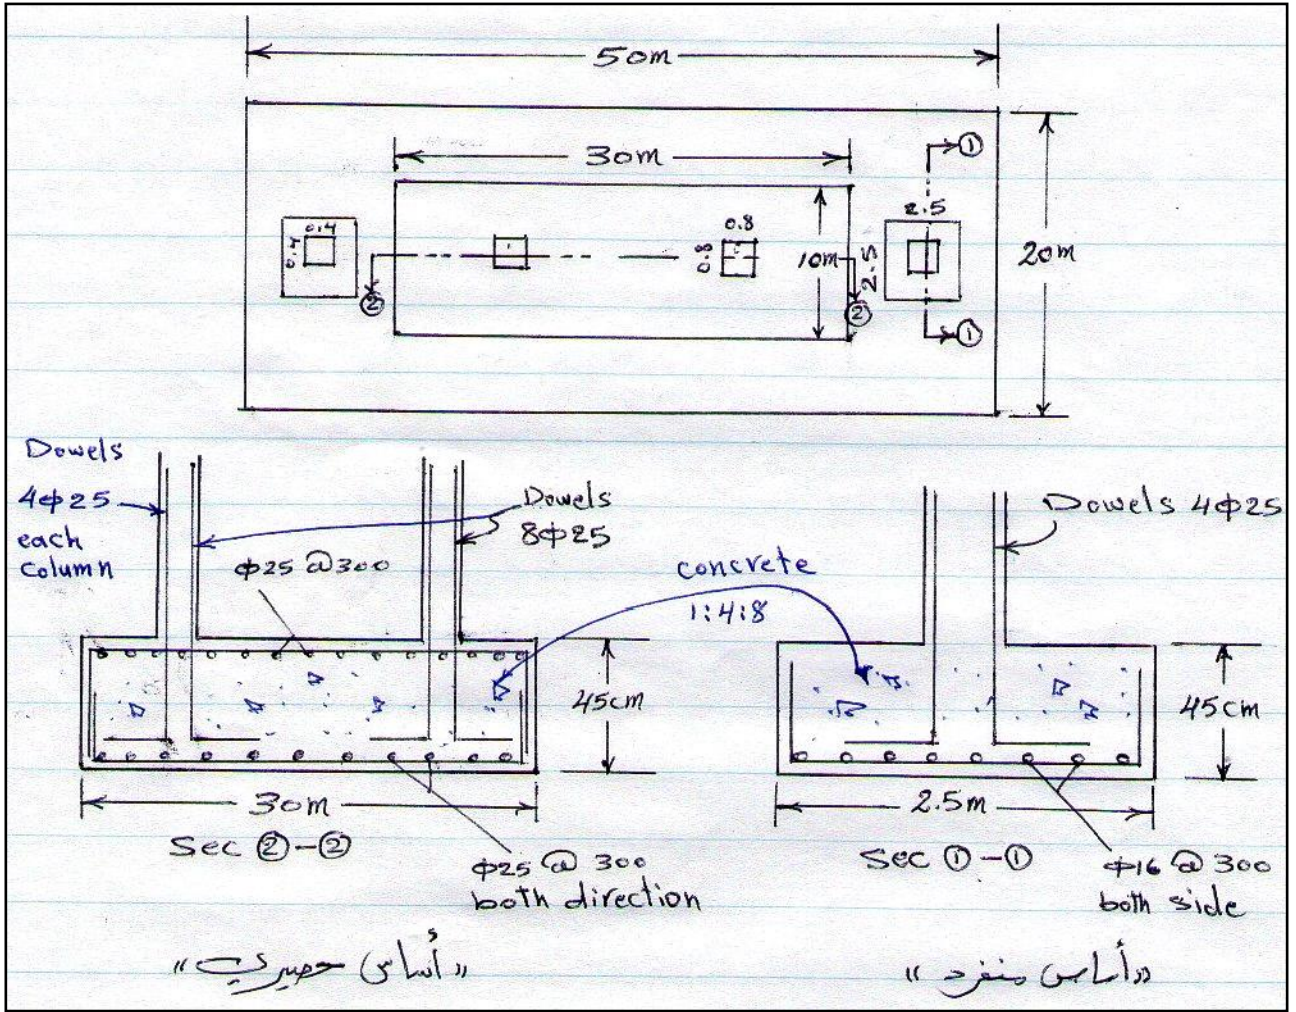 50m
30m
①
2.5
0.4
0.4
0.8
0.8
10m
2.5
20m
②
②
①
Dowels
4φ25
each
column
Dowels
8φ25
φ25 @300
concrete
1:4:8
Dowels 4φ25
45cm
45cm
30m
2.5m
Sec ②-②
Sec ①-①
φ25 @ 300
both direction
φ16 @ 300
both side
"أساس حصيري"
"أساس منفرد"